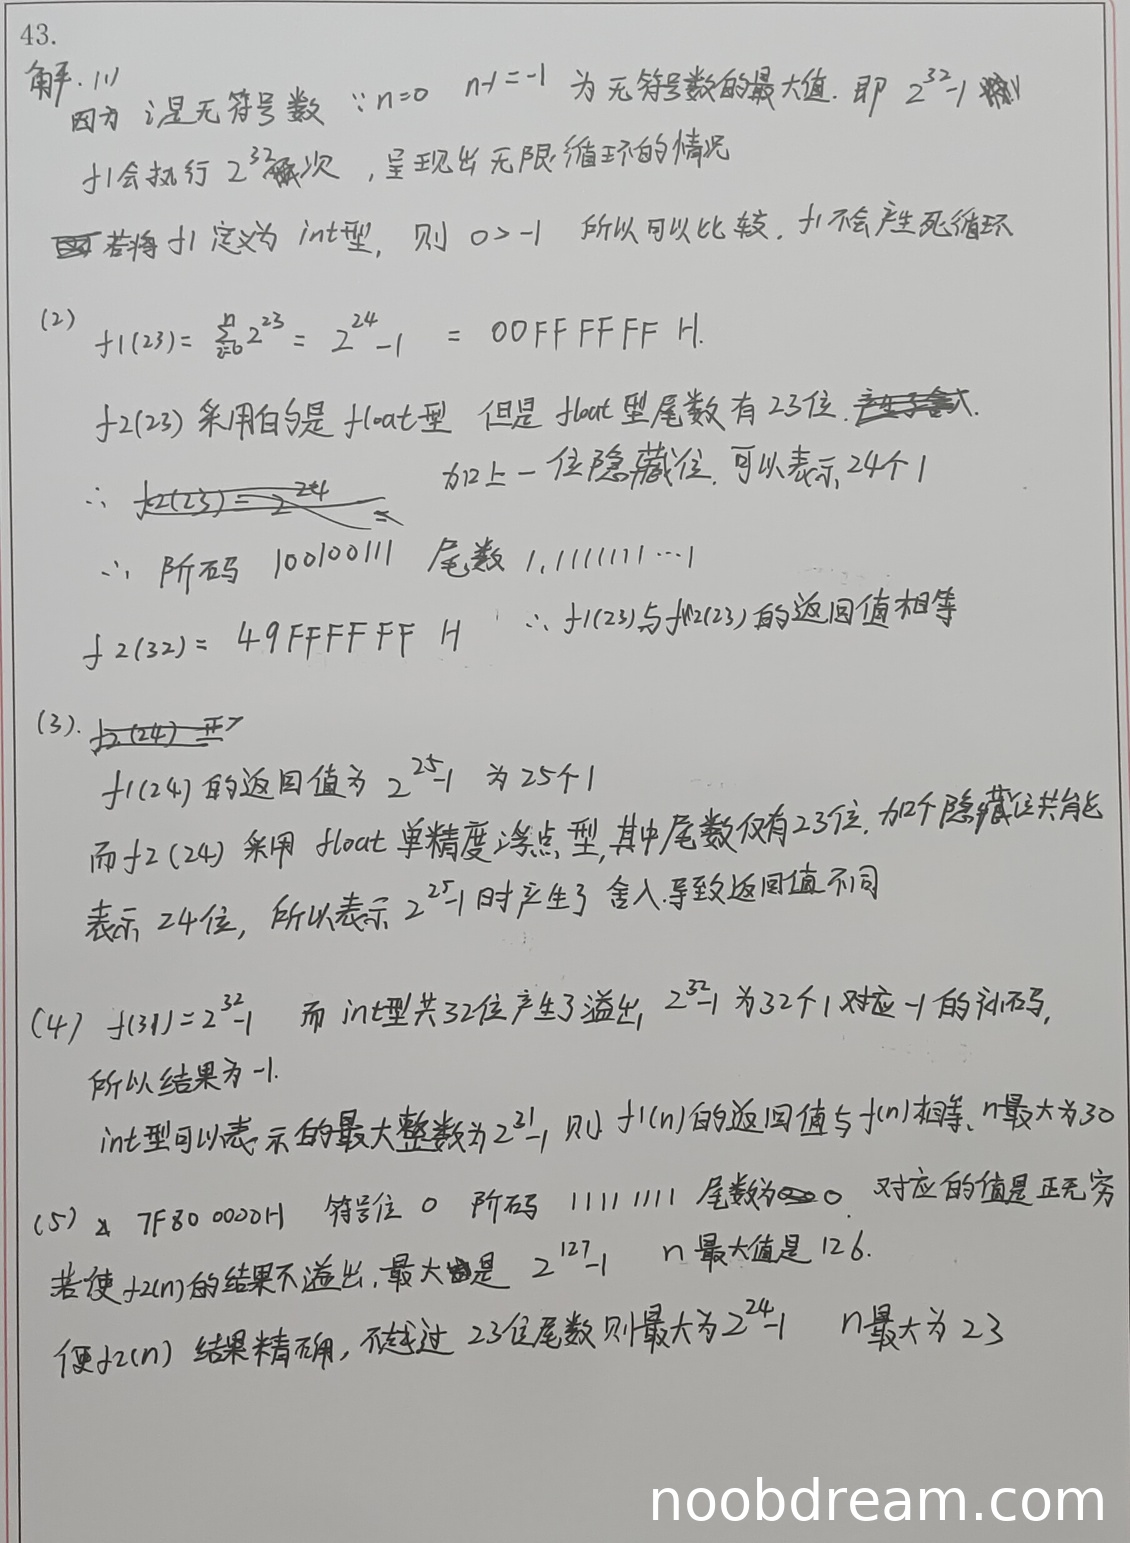 43.
解. (1)
因为 i是无符号数 ∵ n=0 n-1=-1 为无符号数的最大值. 即 2^32-1
f1会执行 2^32次, 呈现出无限循环的情况
若将 f1 定义为 int型, 则 0>-1 所以可以比较. f1不会产生死循环
(2) f1(23)= Σ 2^23 = 2^24-1 = 00FF FF FF H.
f2(23) 采用的是 float型 但是 float 型尾数有 23位.
∴ 加上一位隐藏位. 可以表示 24个1
∴ 阶码 100100111 尾数 1.1111111…1
f2(32)= 49FFFFFF H ∴ f1(23)与f2(23)的返回值相等
(3).
f1(24) 的返回值为 2^25-1 为 25个1
而f2(24) 采用 float 单精度浮点型, 其中尾数仅有23位. 加个隐藏位共能
表示 24位, 所以表示 2^25-1时产生了舍入.导致返回值不同
(4) f(31)=2^32-1 而 int型共32位产生了溢出, 2^32-1 为32个1对应 -1的补码,
所以结果为 -1.
int型可以表示的最大整数为2^31-1, 则 f1(n)的返回值与f(n)相等. n最大为30
(5) 7F80 0000H 符号位 0 阶码 1111 1111 尾数为 0. 对应的值是正无穷
若使f2(n)的结果不溢出, 最大是 2^127-1 n最大值是126.
便f2(n) 结果精确, 不越过 23位尾数则最大为2^24-1 n最大为 23
noobdream.com